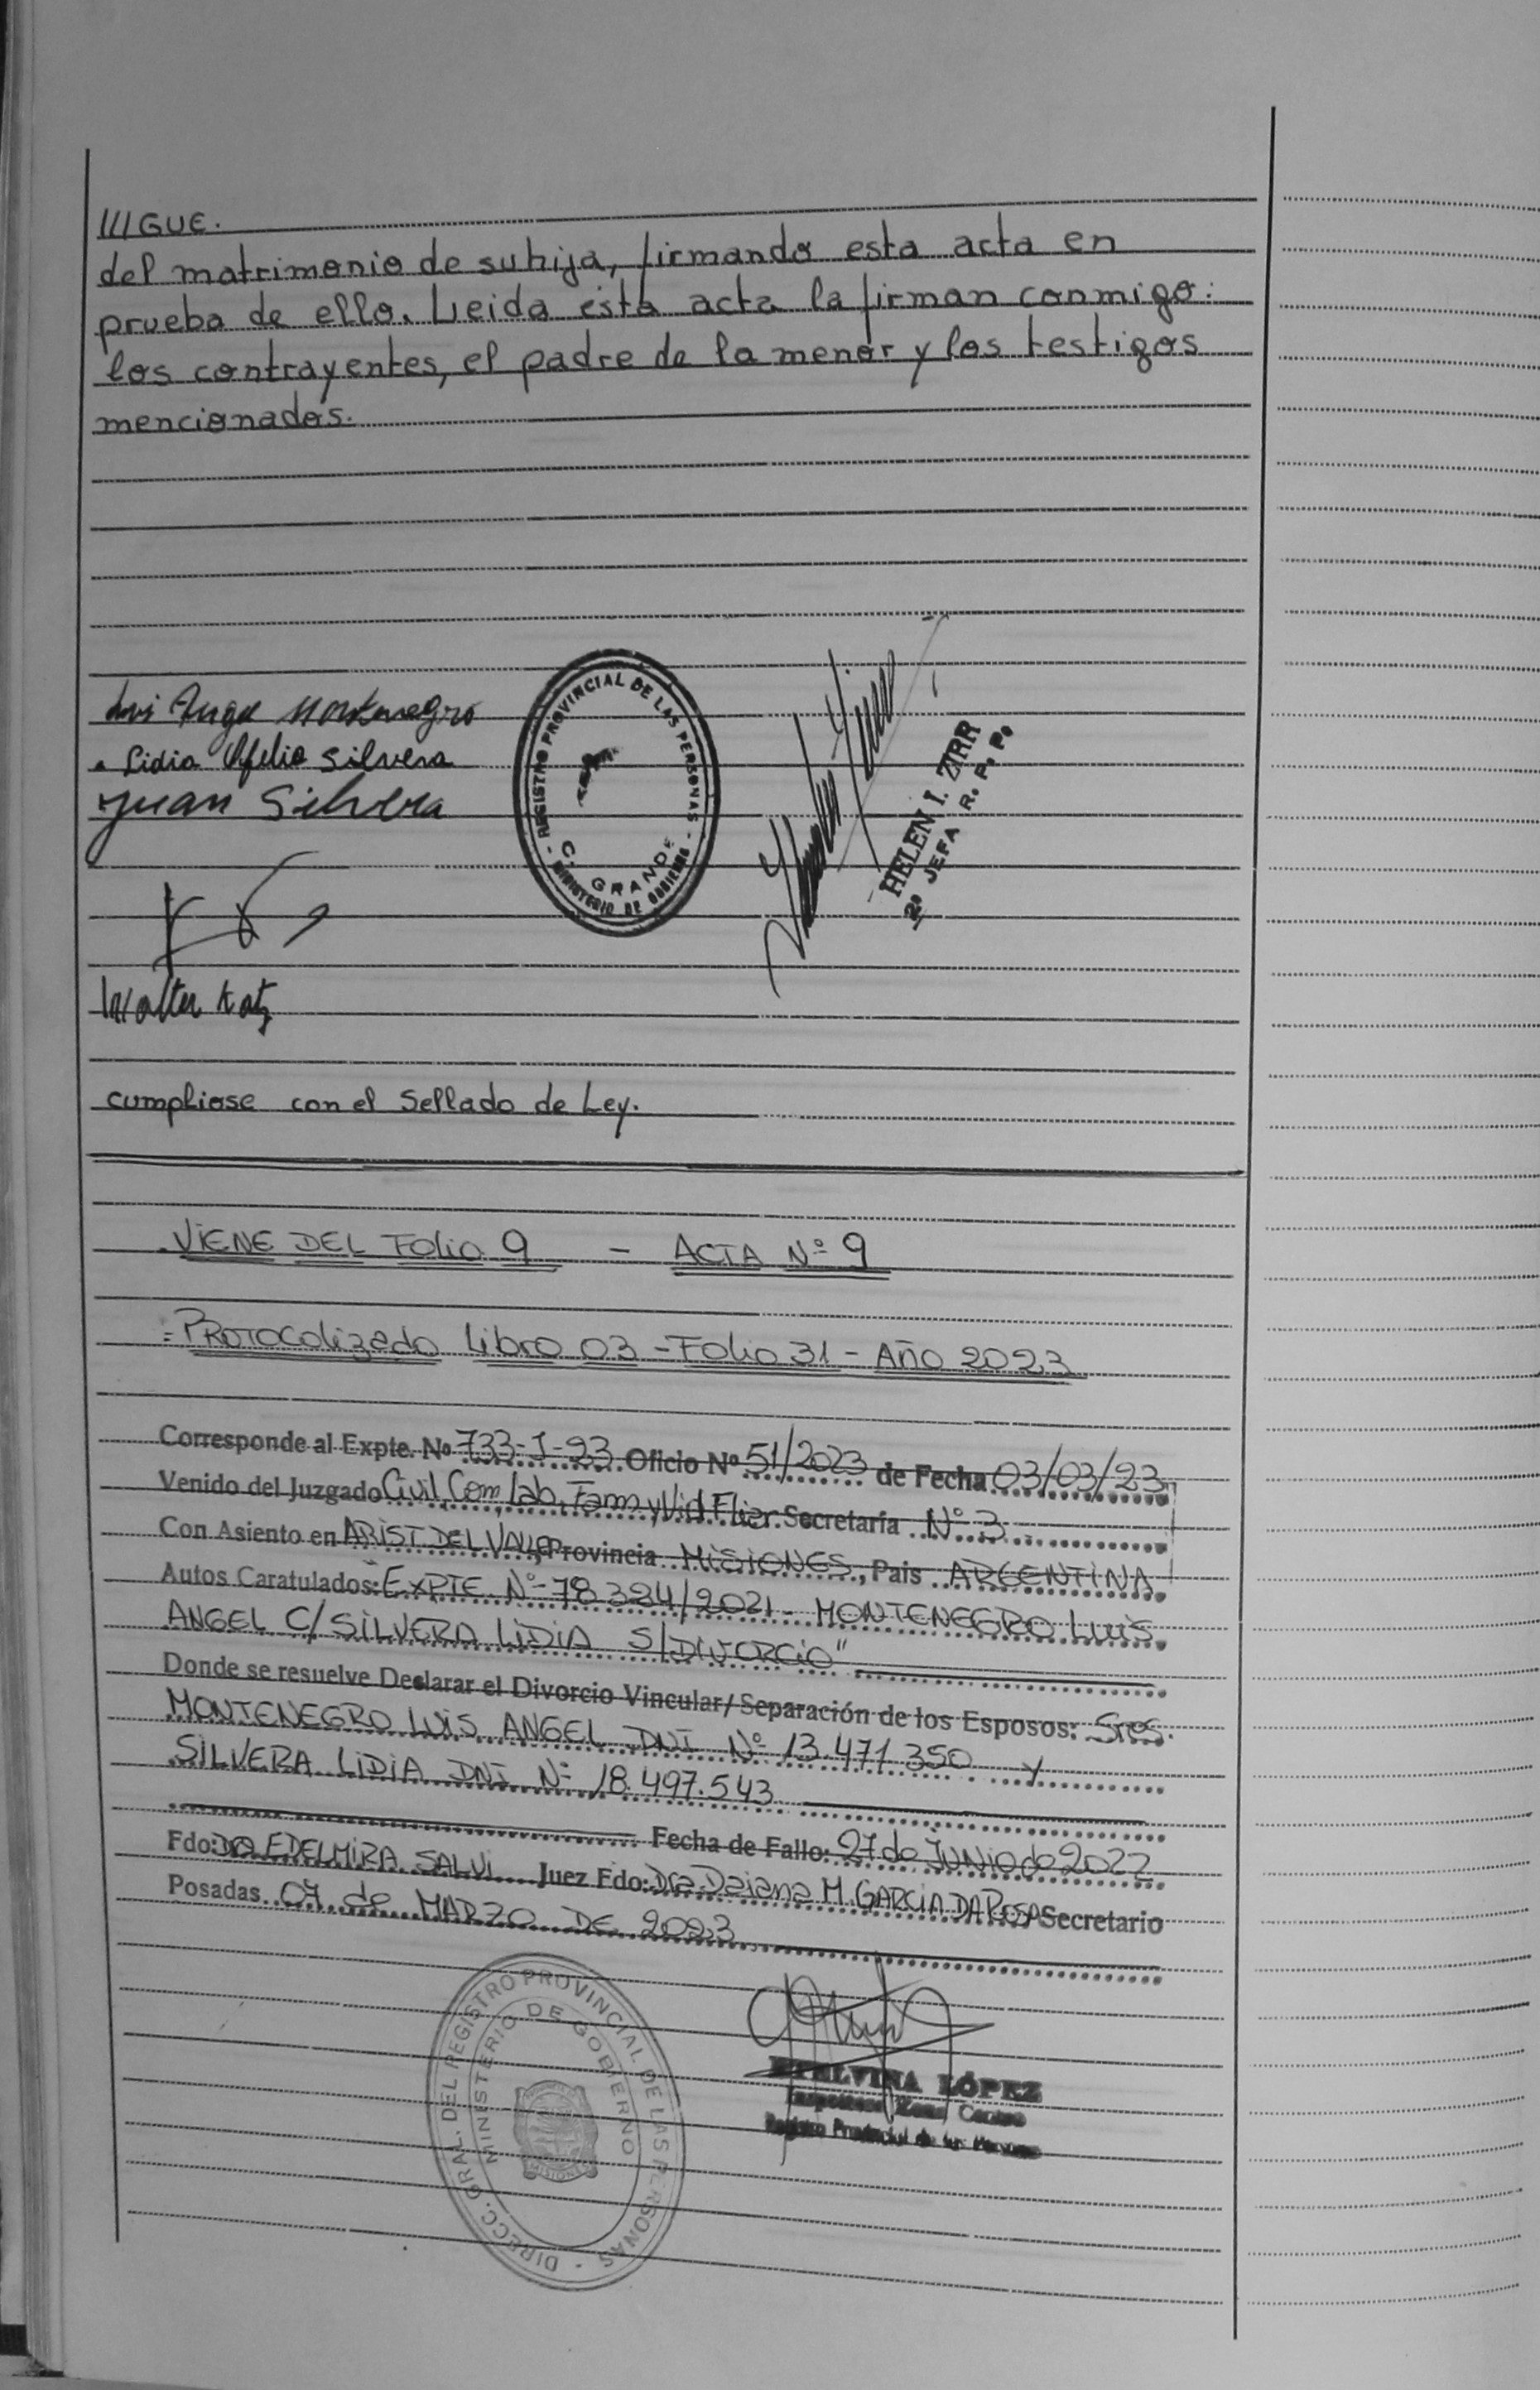 ///GUE.
del matrimonio de su hija, firmando esta acta en
prueba de ello. Leida esta acta la firman conmigo:
los contrayentes, el padre de la menor y los testigos
mencionados.
Luis Angel Montenegro
Lidia Ofelia Silvera
Juan Silvera
- REGISTRO PROVINCIAL DE LAS PERSONAS -
C. GRANDE
MINISTERIO DE GOBIERNO
HELEN I. ZIRR
2º JEFA R. P. P.
Walter Katz
cumpliose con el Sellado de Ley.
VIENE DEL FOLIO 9 - ACTA Nº 9
=PROTOCOLIZADO Libro 03 - FOLIO 31 - AÑO 2023
Corresponde al Expte. Nº 733-J-93 Oficio Nº 51/2023 de Fecha 03/03/23
Venido del Juzgado Civil, Com, Lab, Fam y Viol Fliar Secretaría Nº 3
Con Asiento en ARIST. DEL VALLE, Provincia MISIONES, Pais ARGENTINA
Autos Caratulados: EXPTE Nº 78384/2021 - MONTENEGRO LUIS
ANGEL C/ SILVERA LIDIA S/DIVORCIO"
Donde se resuelve Declarar el Divorcio Vincular/Separación de los Esposos: Sres.
MONTENEGRO LUIS ANGEL DNI Nº 13.471.350 y
SILVERA LIDIA DNI Nº 18.497.543
Fecha de Fallo: 27 de JUNIO de 2022
Fdo: Dra EDELMIRA SALVI Juez Fdo: Dra. Daiana M. GARCIA DA ROSA Secretario
Posadas 07 de MARZO DE 2023
DIRECC. GRAL. DEL REGISTRO PROVINCIAL DE LAS PERSONAS -
MINISTERIO DE GOBIERNO
MISIONES
ETELVINA LÓPEZ
Inspectora Zona Centro
Registro Provincial de las Personas